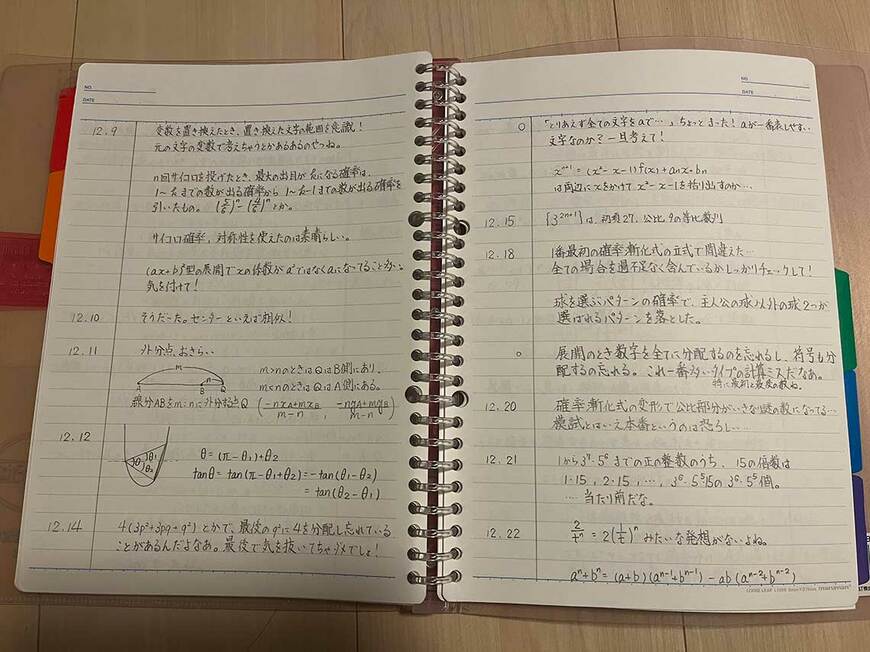 NO.
DATE
12.9 変数を置き換えたとき、置き換えた文字の範囲を意識!
元の文字の変数で考えちゃうとかあるあるのやつね。
n回サイコロを投げたとき、最大の出目がkになる確率は、
1〜kまでの数が出る確率から1〜k-1までの数が出る確率を
引いたもの。 (5/6)^n-(4/6)^n とか。
サイコロ確率、対称性を使えたのは素晴らしい。
(ax+b)²型の展開でxの係数がa²ではなくaになってること
気を付けて!
12.10 そうだった。センターといえば相似!
12.11 外分点、おさらい
m
n
A B Q
m>nのときはQはB側にあり、
m<nのときはQはA側にある。
線分ABをm:nに外分する点Q ((-nxA+mxB)/(m-n), (-nyA+myB)/(m-n))
12.12
θ θ1 θ2
θ=(π-θ1)+θ2
tanθ=tan(π-θ1+θ2)=-tan(θ1-θ2)
=tan(θ2-θ1)
12.14 4(3p²+3pq+q²)とかで、最後のq²に4を分配し忘れている
ことがあるんだよなあ。最後で気を抜いてちゃダメでしょ!
NO.
DATE
「とりあえず全ての文字をaで…」ちょっとまった!aが一番表しやすい
文字なのか?一旦考えて!
x^{n+1}=(x²-x-1)f(x)+anx+bn
は両辺にxをかけてx²-x-1を括り出すのか…
12.15 {3^{2n+1}}は、初項27、公比9の等比数列
12.18 1番最初の確率漸化式の立式で間違えた…
全ての場合を過不足なく含んでいるかしっかりチェックして!
球を選ぶパターンの確率で、主人公の球以外の球2つが
選ばれるパターンを落とした。
展開のとき数字を全てに分配するのを忘れるし、符号も分
配するの忘れる。これ一番多いタイプの計算ミスだなあ。
特に最初と最後の数ね。
12.20 確率漸化式の変形で公比部分がいきなり謎の数になってる…
模試とはいえ本番というのは恐ろしい…
12.21 1から3⁷・5⁶までの正の整数のうち、15の倍数は
1・15, 2・15, …, 3⁶・5⁵15の3⁶・5⁵個。
…当たり前だな。
12.22 2/t^n=2(1/t)^n みたいな発想がないよね。
a^n+b^n=(a+b)(a^{n-1}+b^{n-1})-ab(a^{n-2}+b^{n-2})